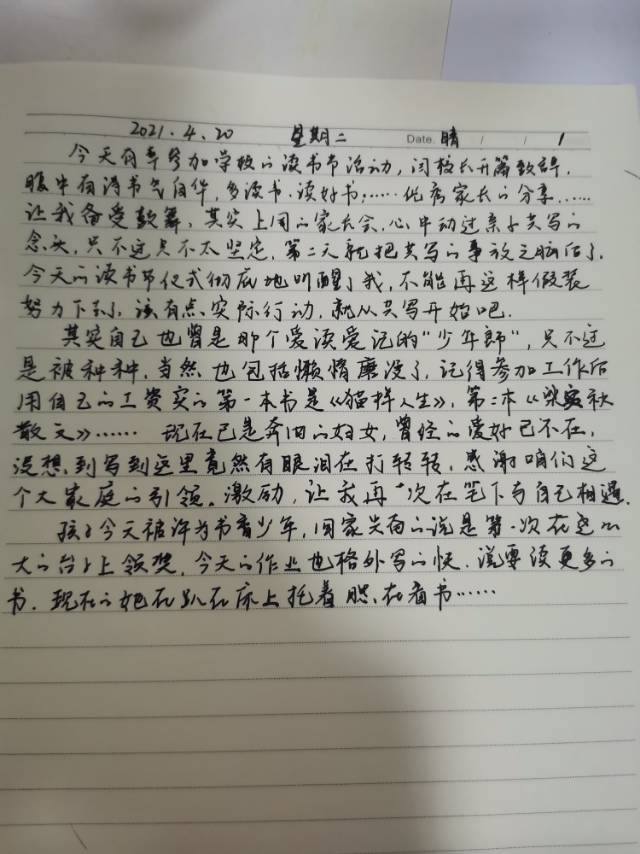 2021.4.20 星期二 Date. 晴 / / 1
今天有幸参加学校的读书节活动,闫校长开篇致辞,
眼中有诗书气自华,多读书、读好书……优秀家长的分享……
让我备受鼓舞,其实上周的家长会,心中动过亲子共写的
念头,只不过只不太坚定,第二天就把共写的事放之脑后了,
今天的读书节仪式彻底地叫醒了我,不能再这样假装
努力下到,该有点实际行动,就从共写开始吧.
其实自己也曾是那个爱读爱记的"少年郎",只不过
是被种种,当然也包括懒惰磨没了,记得参加工作后
用自己的工资买的第一本书是《猫样人生》,第二本《梁实秋
散文》…… 现在已是奔四的妇女,曾经的爱好已不在,
没想到写到这里竟然有眼泪在打转转,感谢咱们这
个大家庭的引领、激励,让我再一次在笔下与自己相遇.
孩子今天被评为书香少年,回家兴奋的说是第一次在这么
大的台子上领奖,今天的作业也格外写的快,说要读更多的
书,现在的她在趴在床上托着腮,在看书……